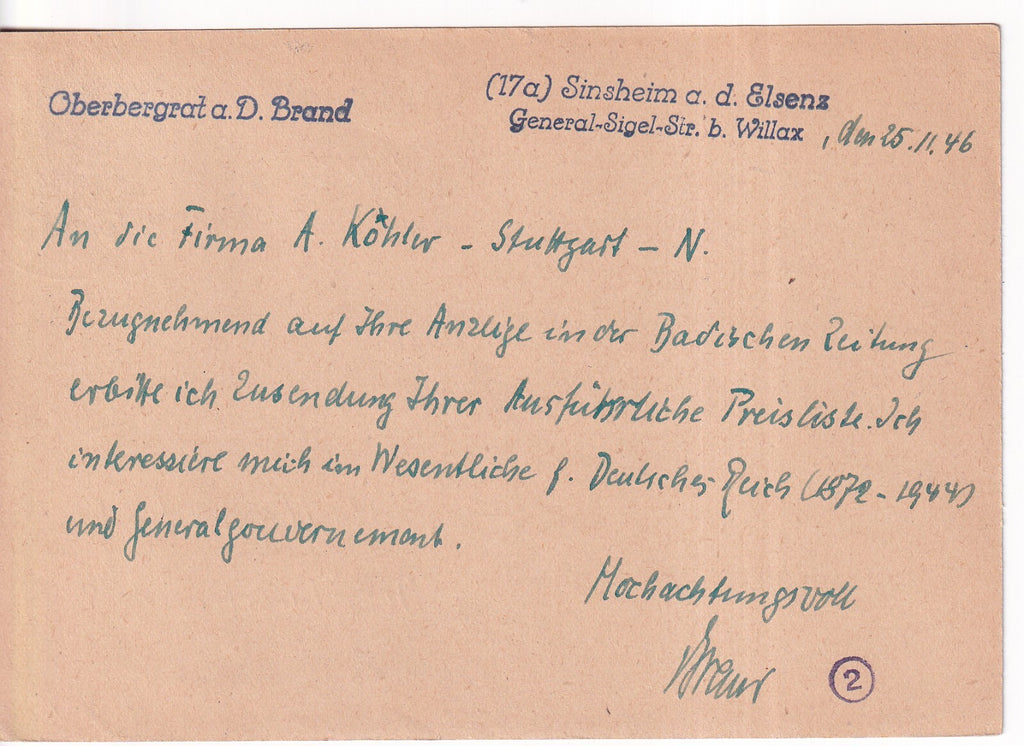 Oberbergrat a. D. Brand
(17a) Sinsheim a. d. Elsenz
General-Sigel-Str. b. Willax , den 25.11.46
An die Firma A. Köhler - Stuttgart - N.
Bezugnehmend auf Ihre Anzeige in der Badischen Zeitung
erbitte ich Zusendung Ihrer Ausführliche Preisliste. Ich
interessiere mich im Wesentliche f. Deutsches Reich (1872 - 1944)
und Generalgouvernement.
Hochachtungsvoll
Brand
2